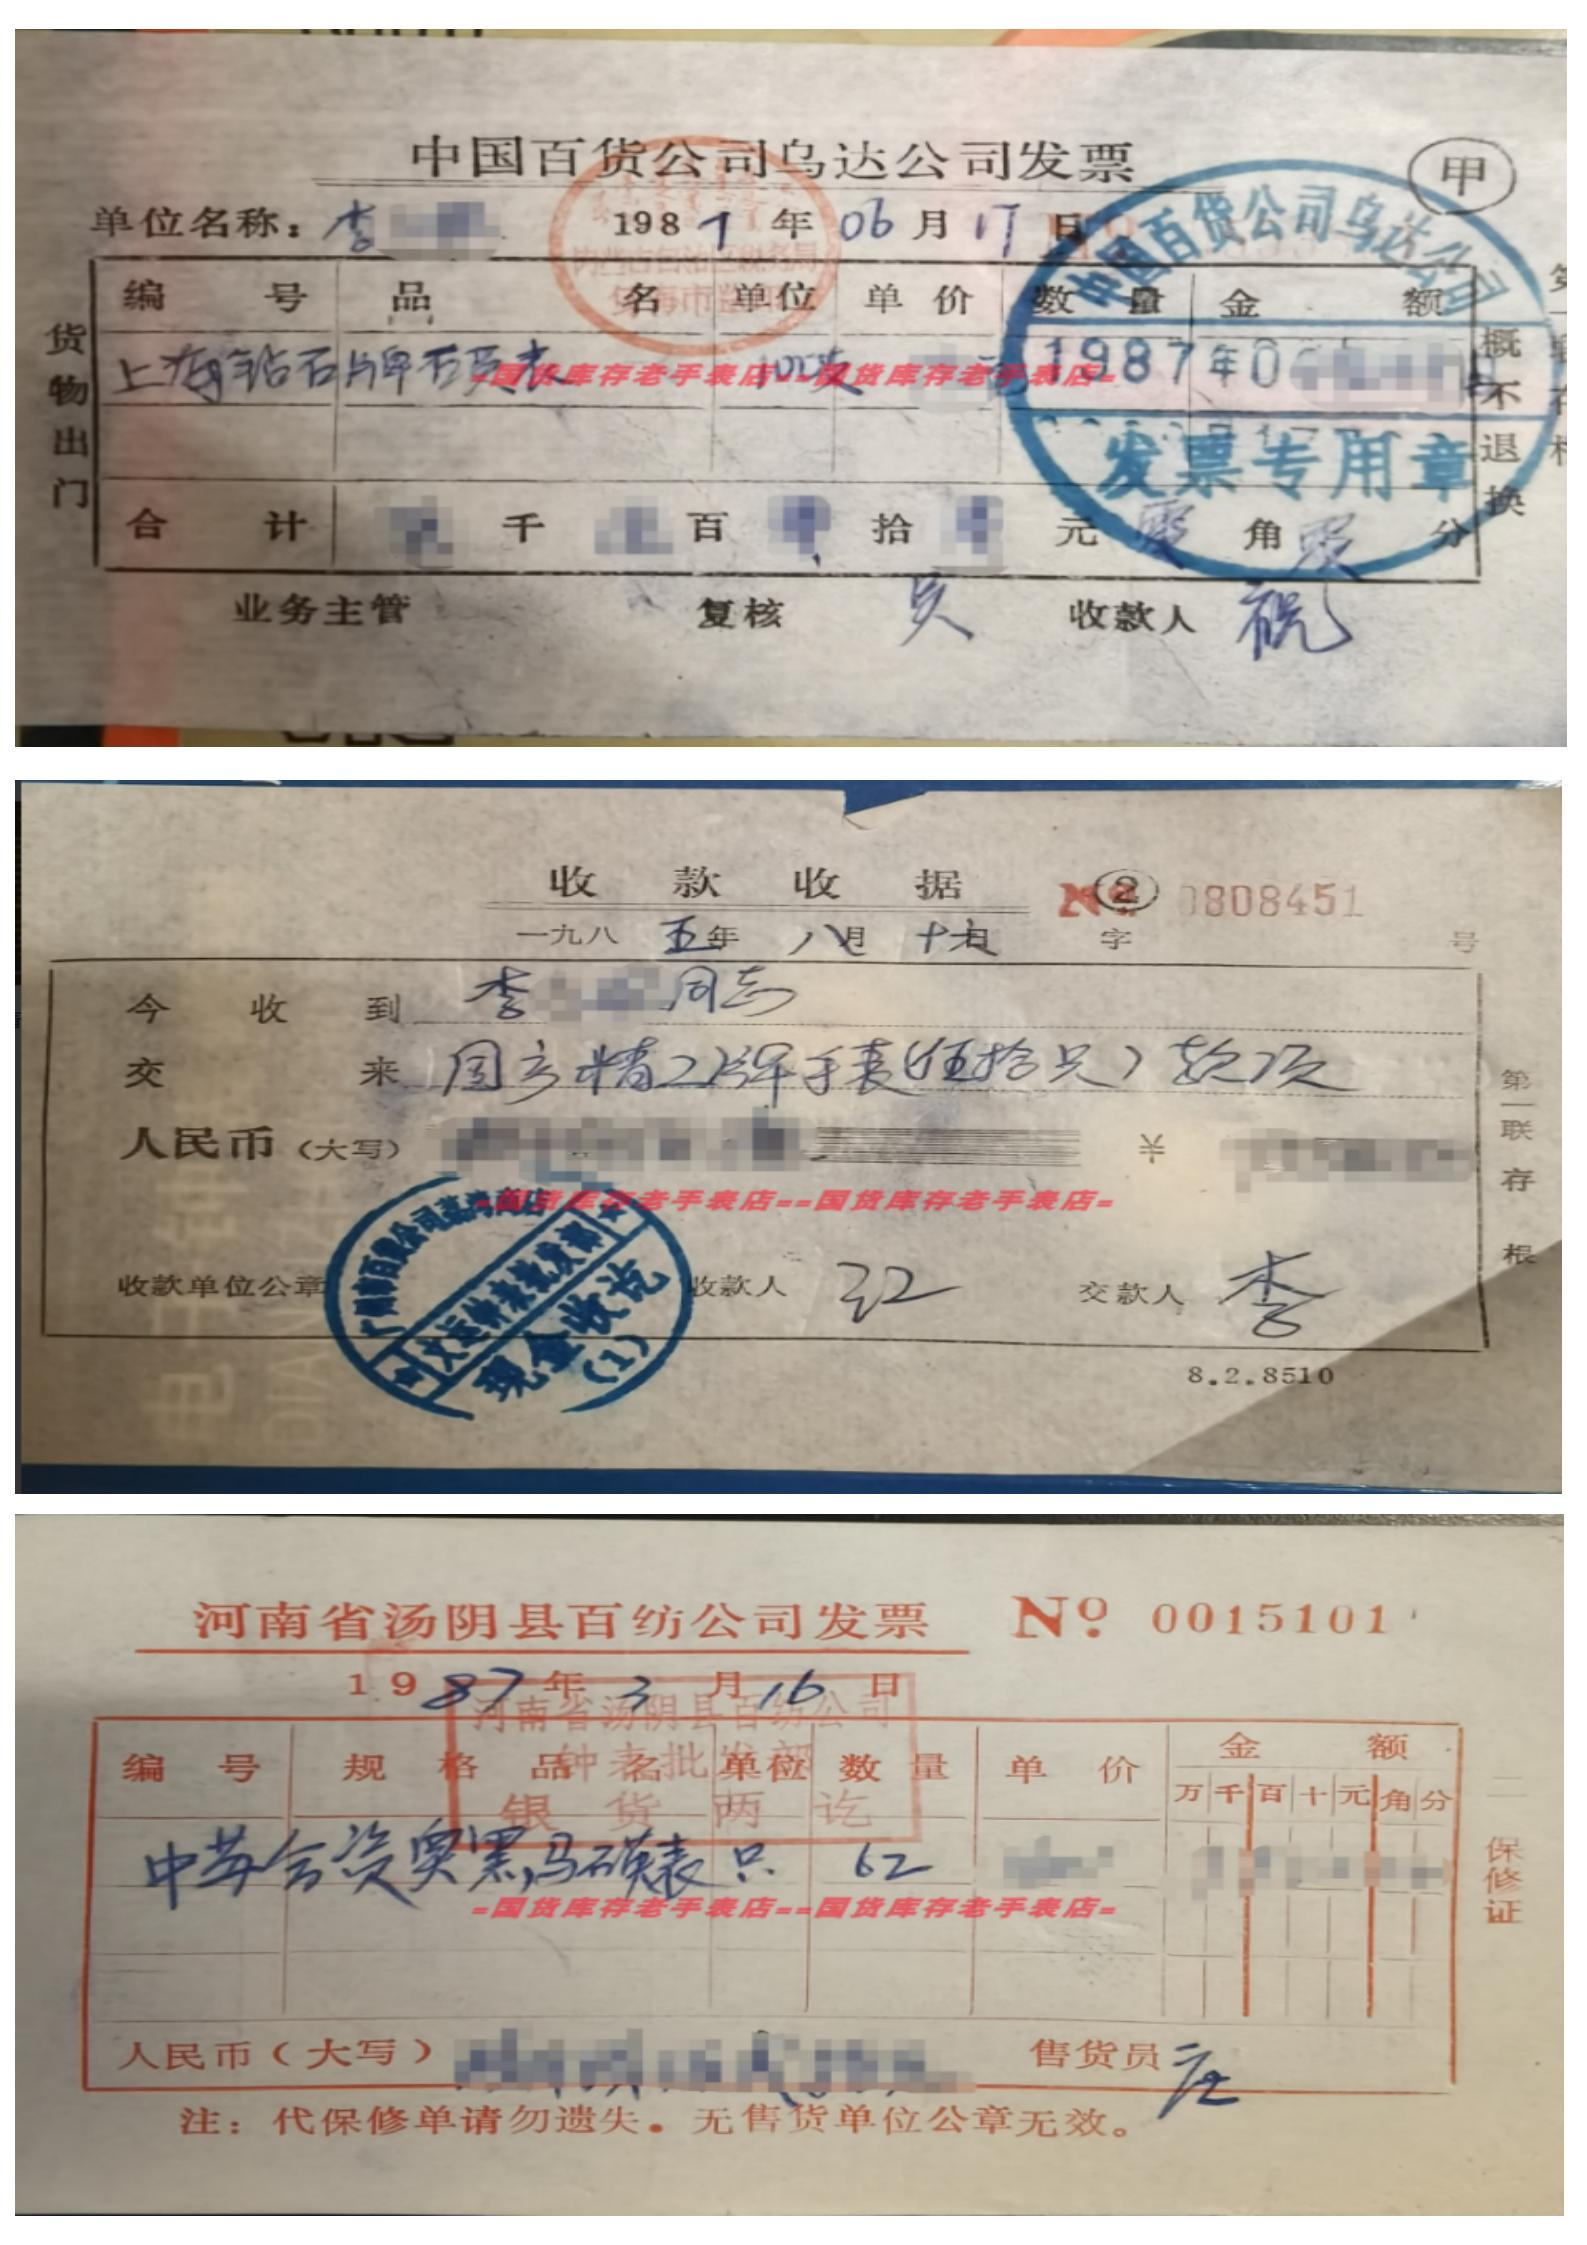 中国百货公司乌达公司发票
甲
单位名称：李 1987年06月17日
内蒙古自治区税务局
中国百货公司乌达公司
编号 品名 单位 单价 数量 金额
货物出门
概不退换
上海钻石牌石英表
1987年0
=国货库存老手表店==国货库存老手表店=
发票专用章
合计 千 百 拾 元 零角 零分
业务主管 复核 收款人 祝
收款收据 ② № 0808451
一九八五年八月十六日 字 号
今收到 李 同志
交来 国产精工牌手表（伍拾只）款项
人民币（大写） ¥
第一联存根
=国货库存老手表店==国货库存老手表店=
文运钟表批发部
现金收讫
(1)
收款单位公章 收款人 江 交款人 李
8.2.8510
电子钟
河南省汤阴县百纺公司发票 № 0015101
1987年3月16日
河南省汤阴县百纺公司
钟表批发部
银货两讫
编号 规格品名 单位 数量 单价 金额
万千百十元角分
二 保修证
中英合资奥黑马石英表 只 62
=国货库存老手表店==国货库存老手表店=
人民币（大写） 售货员 庄
注：代保修单请勿遗失。无售货单位公章无效。